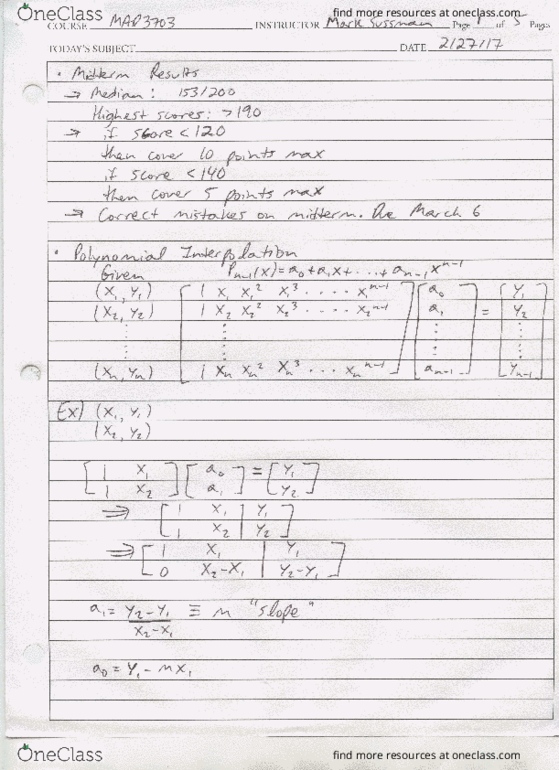 OneClass find more resources at oneclass.com
COURSE MAP3703 INSTRUCTOR Mark Sussman Page 1 of 5 Pages
TODAY'S SUBJECT DATE 2/27/17
• Midterm Results
→ Median: 153/200
Highest scores: >190
→ if score <120
then cover 10 points max
if score <140
then cover 5 points max
→ Correct mistakes on midterm. Due March 6
• Polynomial Interpolation
Given Pn-1(x)=a0+a1x+...+an-1x^n-1
(x1, y1) [1 x1 x1^2 x1^3 .... x1^n-1] [a0] [y1]
(x2, y2) [1 x2 x2^2 x2^3 .... x2^n-1] [a1] = [y2]
⋮ ⋮ ⋮ ⋮ ⋮
(xn, yn) [1 xn xn^2 xn^3 ... xn^n-1] [an-1] [yn-1]
Ex) (x1, y1)
(x2, y2)
[1 x1] [a0] = [y1]
[1 x2] [a1] [y2]
⇒ [1 x1 | y1]
[1 x2 | y2]
⇒ [1 x1 | y1]
[0 x2-x1 | y2-y1]
a1 = y2-y1 ≡ m "slope"
x2-x1
a0 = y1 - mx1
OneClass find more resources at oneclass.com